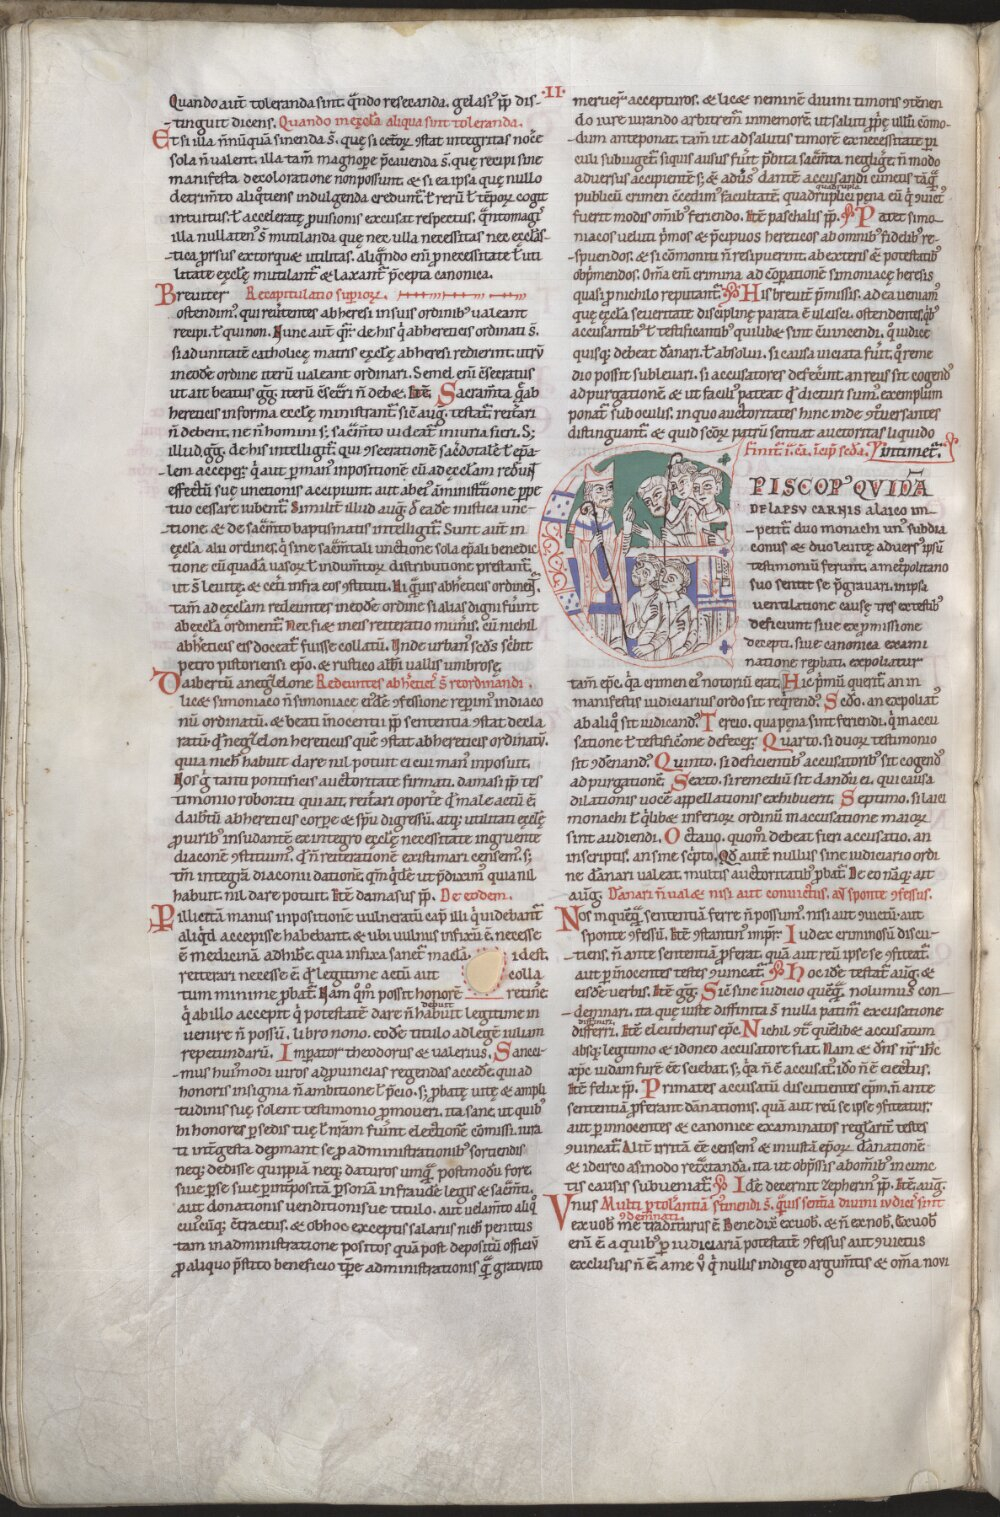 ·II·
Quando aut̄ toleranda sint. q̄ndo resecanda. gelasi᷒ p̄p dis-
tinguit dicens. Quando in ęccl̄a aliqua sint toleranda.
Et si illa n̄nūquā sinenda s̄. quę si cet̄oꝝ 9stat integritas noc̄e
sola n̄ ualent. illa tam̄ magnope p̄cauenda s̄. quę recipi sine
manifesta decoloratione non possunt. & si ea ipsa quę nullo
detrim̄to aliq̄tiens indulgenda credunt̄. ł rerū ł t̄mpoꝝ cogit
intuitus. ł acceleratę ꝓuisionis excusat respectus. q̄ntomagi᷒
illa nullaten᷒ s̄ mutilanda quę nec ulla necessitas nec ęccl̄as-
tica prorsus extorq̄& utilitas. aliq̄ndo eni ꝑ necessitate ł uti
litate ęccl̄ę mutilant̄ & laxant̄ p̄cepta canonica.
Breuiter Recapitulatio superioꝝ.
ostendim᷒. qui reūtentes ab heresi in suis ordinib᷒ ualeant
recipi. ł qui non. Nunc aut̄ q̄r̄ de his q̄ ab hereticis ordinati s̄.
si ad unitatē catholicę matris ęccl̄ę ab heresi redierint. utrū
in eodē ordine iterū ualeant ordinari. Semel enī 9secratus
ut ait beatus gḡ. iterū 9sec̄ri n̄ deb&. Itē. Sacram̄ta q̄ ab
hereticis in forma ęccl̄ę ministrant̄. sic̄ auḡ. testat̄. reit̄ari
n̄ debent. ne n̄ homini s; sac̄m̄to uideat̄ iniuria fieri. S;
illud gḡ. de his intelligit̄. qui 9secrationē sac̄dotalē ł ep̄a-
lem acceper̄. q̄ aut ꝑ man᷒ inpositionē cū ad ęccl̄am redeunt
effectū suę unctionis accipiunt. aut ab ei᷒ am̄inist̄tione ꝑpe
tuo cessare iubent̄. Similit̄ illud auḡ. d̄ eadē mistica unc-
tione. & de sac̄m̄to baptismatis intelligit̄. Sunt aut̄ in
ęccl̄a alii ordines. q̄ sine sac̄m̄tali unctione sola ep̄ali benedic
tione cū quadā uasoꝝ ł indum̄toꝝ distributione prestant̄.
ut s̄ leuitę. & cet̄i infra eos 9stituti.
tam̄ ad ęccl̄am redeuntes in eodē ordine si alias digni fūint
ab ęccl̄a ordinent̄.
ab h̄eticis ei doceat̄ fuisse collatū. Unde urban᷒ sc̄ds sc̄bit
petro pistoriensi ep̄o. & rustico abb̄i uallis umbrosę.
Daibertū a neḡelone Redeuntes ab h̄etici᷒ s̄ reordinandi.
lic& simoniaco n̄ simoniacę
nū ordinatū. & beati innocentii p̄p sententia 9stat decla
ratū. q̄ neḡelon hereticus quē 9stat ab hereticis ordinatū.
quia nich̄ habuit dare nil potuit ei cui man᷒ inposuit.
Nos ḡ tanti pontificis auctoritate firmati. damasi p̄p tes
timonio roborati qui ait. reit̄ari oport& q̄ male actū ē.
daib̄tū ab hereticis corꝑe & sp̄u digressū. atq; utilitati ęccl̄ę
ꝓ uirib᷒ insudantē ex integro ęccl̄ę necessitate ingruente
diaconē 9stituim᷒. q̄ n̄ reiterationē existimari censem᷒. s;
tm̄ integrā diaconii dationē. qm̄ q̄dē ut p̄dixim᷒ quia nil
habuit. nil dare potuit. Itē damasus p̄p. De eodem.
Per illicitā manus inpositionē uulneratū cap̄ illi q̄ uidebant̄
aliq̄d accepisse habebant. & ubi uulnus infixū ē. necesse
ē medicinā adhibe. qua infixa sanet̄ macl̄a. idest
reiterari necesse ē q̄ legitime actū aut colla
tum minime ꝓbat̄. Nam qm̄ possit honorē retinē
q̄ ab illo accepit q̄ potestatē dare n̄ habuit legitime in
debuit
uenire n̄ possū. libro nono. eodē titulo ad legē iuliam
repetundarū. Impator theodorus & ualerius. Sanci-
mus hui᷒modi uiros ad ꝓuincias regendas acced̄e. qui ad
honoris insignia n̄ ambitione ł p̄cio. s; ꝓbatę uitę & ampli
tudinis suę solent testimonio ꝓmoueri. ita sane ut quib᷒
hi honores ꝑ sedis tuę ł nr̄am fuint electionē cōmissi. iura
ti int̄ gesta dep̄mant se ꝓ administrationib᷒ sortiendis
neq; dedisse quippiā neq; daturos unq̄ᷓ postmodū fore.
siue ꝑ se siue ꝑ int̄positā ꝑsonā in fraudē legis & sac̄m̄ti.
aut donationis uenditionisue titulo. aut uelam̄to aliq̄
cui᷒cūq; 9tractus. & ob hoc exceptis salariis nich̄ penitus
tam in administratione positos quā post depositū officiū
ꝓ aliquo p̄stito beneficio t̄pe administrationis q̄ᷓ gratuito
meruer̄ accepturos. & lic& neminē diuini timoris 9tēnen
do iure iurando arbitrem̄ inmemorē. ut saluti ꝓpę ullū cōmo-
dum anteponat. tam̄ ut ad salutis timorē ex necessitate pi
culi subiuget̄. siquis ausus fūit p̄dita sac̄m̄ta negliḡe. n̄ modo
aduersus accipientē s; & adūs᷒ dantē accusandi cunctis tāq̄ᷓ
publicū crimen 9cedim᷒ facultatē. quadruplici pęna eū q̄ 9uict᷒
quadrupla
fuerit modis om̄ib᷒ feriendo. Itē paschalis p̄p. Patet simo-
niacos ueluti p̄mos & p̄cipuos hereticos ab omnib᷒ fidelib᷒ re-
spuendos. & si cōmoniti n̄ resipuerint. ab exteris & potestatib᷒
obp̄mendos. Om̄a enī crimina ad cōparationē simoniacę heresis
quasi ꝓ nichilo reputant̄. His breuit̄ p̄missis. ad ea ueniam᷒
quę ęccl̄a seueritate disciplinę parata ē ulcisci. ostendentes. q̄b᷒
accusantib᷒ ł testificantib᷒ quilib& sint 9uincendi. q̄ iudice
quisq; debeat dānari. ł absolui. si causa uiciata fūit. q̄ reme
dio possit subleuari. si accusatores defec̄int. an reus sit cogend᷒
ad purgationē. & ut facili᷒ pateat q̄ dicturi sum᷒. exemplum
ponat̄ sub oculis. in quo auctoritates hinc inde 9tuersantes
distinguant̄. & quid sc̄oꝝ patrū sentiat auctoritas liquido
Finit̄. i. c̄a. incip̄ sc̄da. intimet̄.
EPISCOP᷒ QVIDĀ
DE LAPSV CARNIS a laico im-
petit̄. duo monachi un᷒ subdia
conus & duo leuitę aduers᷒ ipsū
testimoniū ferunt. a metropolitano
suo sentit se p̄grauari. in ipsa
uentilatione causę tres ex testib᷒
deficiunt siue ex ꝓmissione
decepti. siue canonica exami
natione reprobati. expoliatur
tam̄ ep̄c. q̄a crimen ei᷒ notoriū erat. Hic p̄mū querit̄. an in
manifestis iudiciarius ordo sit req̄rend᷒. Sec̄do. an expoliat᷒
ab aliq̄ sit iudicand᷒. Tercio. qua pęna sint feriendi. q̄ in accu
satione ł testificōne defecer̄. Quarto. si duoꝝ testimonio
sit 9dēnand᷒. Quinto. si deficientib᷒ accusatorib᷒ sit cogend᷒
ad purgationē. Sexto. si remediū sit dandū ei. qui causa
dilationis uocē appellationis exhibuerit. Septimo. si laici
monachi ł q̄lib& inferioꝝ ordinū in accusatione maioꝝ
sint audiendi. Octauo. quom̄ debeat fieri accusatio. an
in scriptis. an sine sc̄pto. Qd̄ autē nullus sine iudiciario ordi
ne dānari ualeat. multis auctoritatib᷒ ꝓbat̄.
auḡ. Dānari n̄ ual& nisi aut conuictus. aut sponte 9fessus.
Nos in quēq̄ᷓ sententiā ferre n̄ possum᷒. nisi aut 9uictū. aut
sponte 9fessū. Itē 9stantin᷒ imp̄r. Iudex criminosū discu-
tiens. n̄ ante sententiā ꝓferat. quā aut reū ipse se 9fiteat̄.
aut ꝑ innocentes testes 9uincat̄. Hoc idē testat̄ auḡ. &
eisdē uerbis. Itē gḡ. Sic̄ sine iudicio quēq̄ᷓ nolumus con-
demnari. ita quę iuste diffinita s̄ nulla patim᷒ excusatione
differri. Itē eleutherius ep̄c. Nichil 9t̄ quēlib& accusatum
diffiniri
absq; legitimo & idoneo accusatore fiat. Nam & dn̄s nr̄ ih̄c
xp̄c iudam furē ēē sciebat. s; q̄a n̄ ē accusat᷒. idō n̄ ē eiectus.
Itē felix p̄p. Primates accusatū discutientes ep̄m. n̄ ante
sententiā ꝓferant dānationis. quā aut reū se ipse 9fiteatur.
aut ꝑ innocentes & canonice examinatos regl̄arit̄ testes
9uincat̄. Alit̄ irritā ēē censem᷒ & iniustā ep̄oꝝ dānationē
& idcirco a sinodo ret̄ctandā. ita ut obp̄ssis ab omnib᷒ in cunc
tis causis subueniat̄. Idē decernit zepherin᷒ p̄p. Itē auḡ.
Vnus Multi ꝑ tolerantiā sustinendi s̄. q̄ᷓuis sentētia diuini iudicii sint
9demnati.
ex uob᷒ me traditurus ē. Benedix̄ ex uob᷒. & n̄ ex nob᷒. Ex uob᷒
enī ē a quib᷒ ꝑ iudiciariā potestatē 9fessus aut 9uictus
exclusus n̄ ē. a me ū q̄ nullis indigeo argum̄tis & om̄a noui